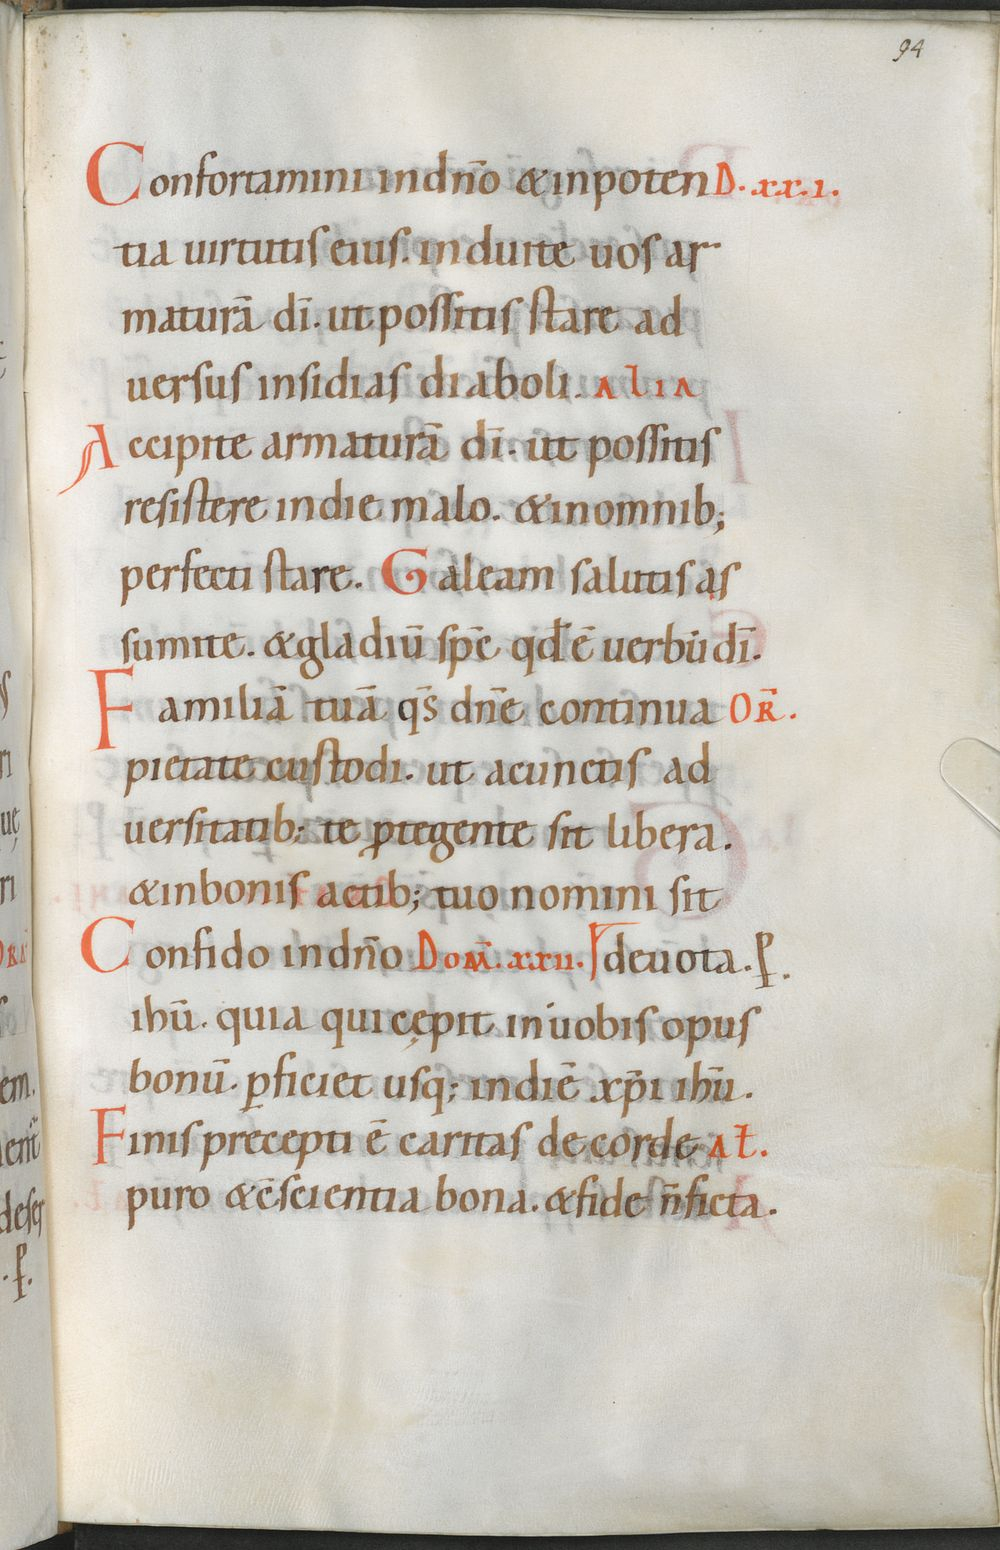 94
Confortamini in dn̄o & in poten D. xx.i.
tia uirtutis eius. induite uos ar
maturā dī. ut possitis stare ad
uersus insidias diaboli. ALIA
Accipite armaturā dī. ut possitis
resistere in die malo. & in omnib;
perfecti stare. Galeam salutis as
sumite. & gladiū sp̄c qđ ē uerbū dī.
Familiā tuā q̄s dn̄e continua OR̄.
pietate custodi. ut acunctis ad
uersitatib; te ꝓtegente sit libera.
& in bonis actib; tuo nomini sit
Confido in dn̄o Dom̄. xxii. deuota. P̱.
ihū. quia qui cępit in uobis opus
bonū. ꝑficiet usq; in diē xp̄i ihū.
Finis precepti ē caritas de corde AŁ.
puro & c̄scientia bona. & fide n̄ ficta.